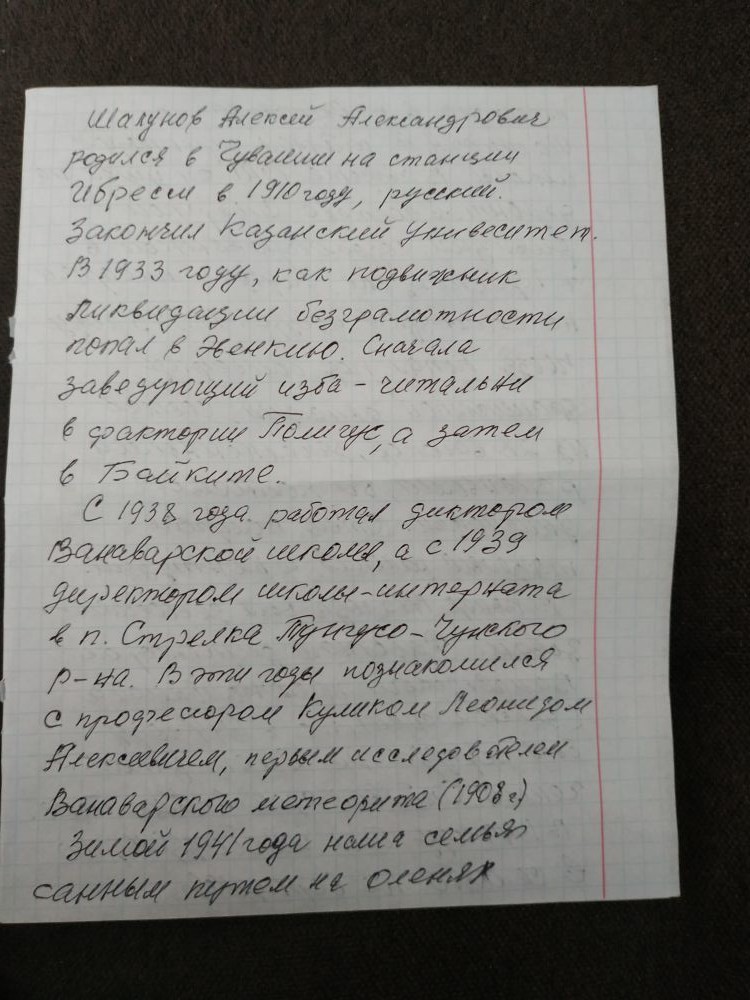 Шалунов Алексей Александрович
родился в Чувашии на станции
Ибреси в 1910 году, русский.
Закончил Казанский универcитет.
В 1933 году, как подвижник
ликвидации безграмотности
попал в Эвенкию. Сначала
заведующий изба-читальни
в фактории Полигус, а затем
в Байките.
С 1938 года работал диктором
Ванаварской школы, а с 1939
директором школы-интерната
в п. Стрелка Тунгуско-Чунского
р-на. В эти годы познакомился
с профессором Куликом Леонидом
Алексеевичем, первым исследователем
Ванаварского метеорита (1908 г)
Зимой 1941 года наша семья
санным путем на оленях